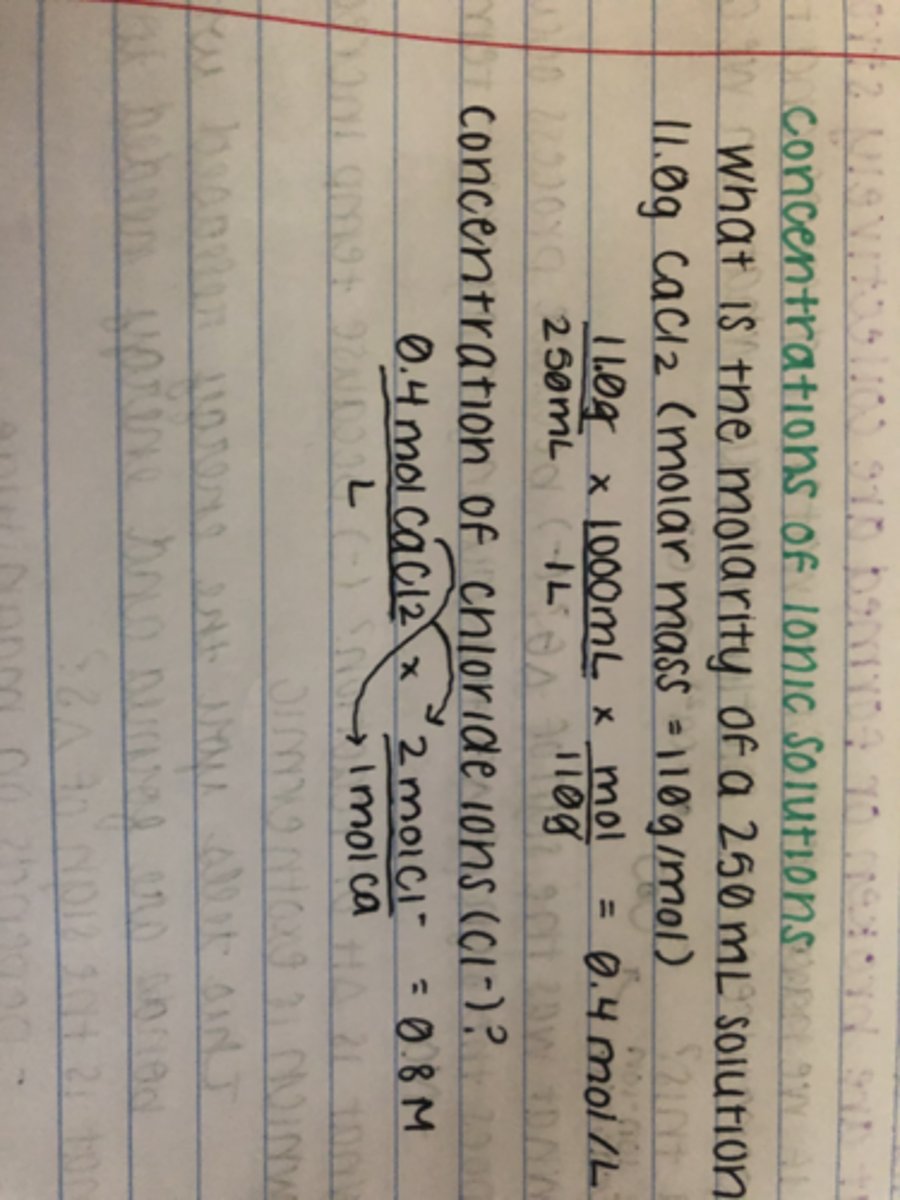 concentrations of ionic solutions
what is the molarity of a 250mL solution
11.0g CaCl2 (molar mass = 110g/mol)
11.0g x 1000mL x mol = 0.4 mol/L
250mL 1L 110g
concentration of chloride ions (Cl-)?
0.4 mol CaCl2 x 2 mol Cl- = 0.8 M
L 1 mol Ca